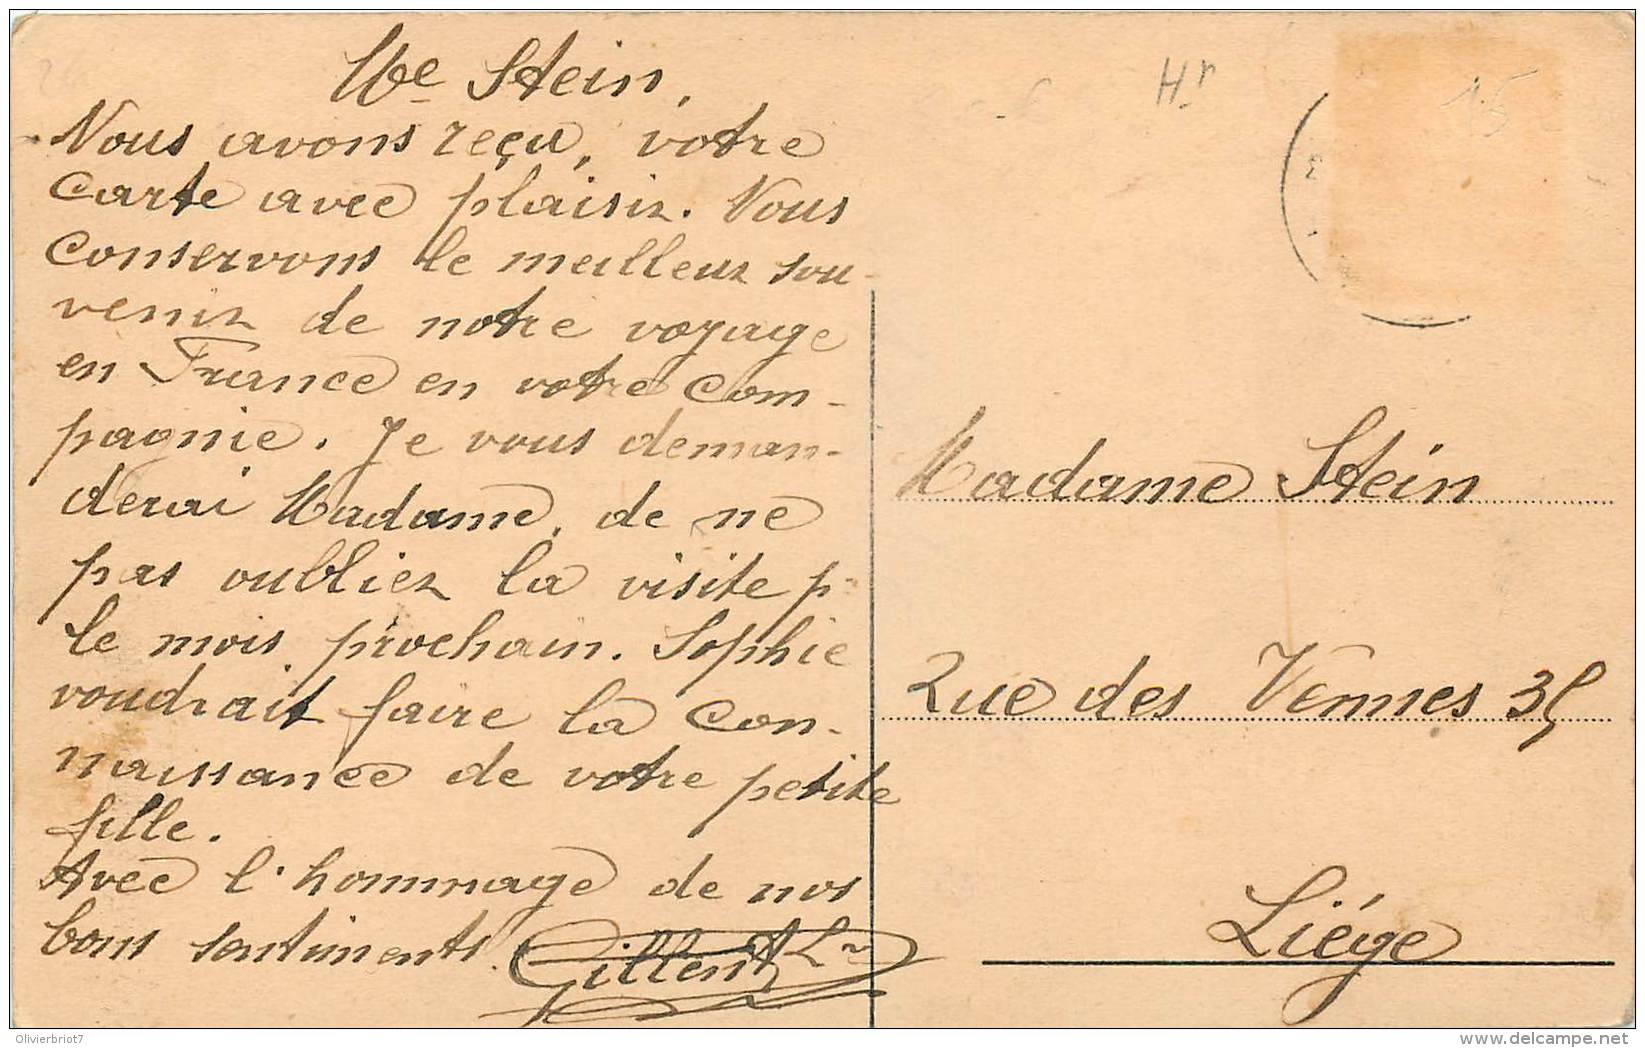 Me Stein,
Nous avons reçu, votre
carte avec plaisir. Nous
conservons le meilleur sou-
venir de notre voyage
en France en votre com-
pagnie. Je vous deman-
derai Madame, de ne
pas oublier la visite p.
le mois prochain. Sophie
voudrait faire la con-
naissance de votre petite
fille.
Avec l'hommage de nos
bons sentiments.
Hr
15
Madame Stein
Rue des Vennes 35
Liége
Olivierbriot7
www.delcampe.net